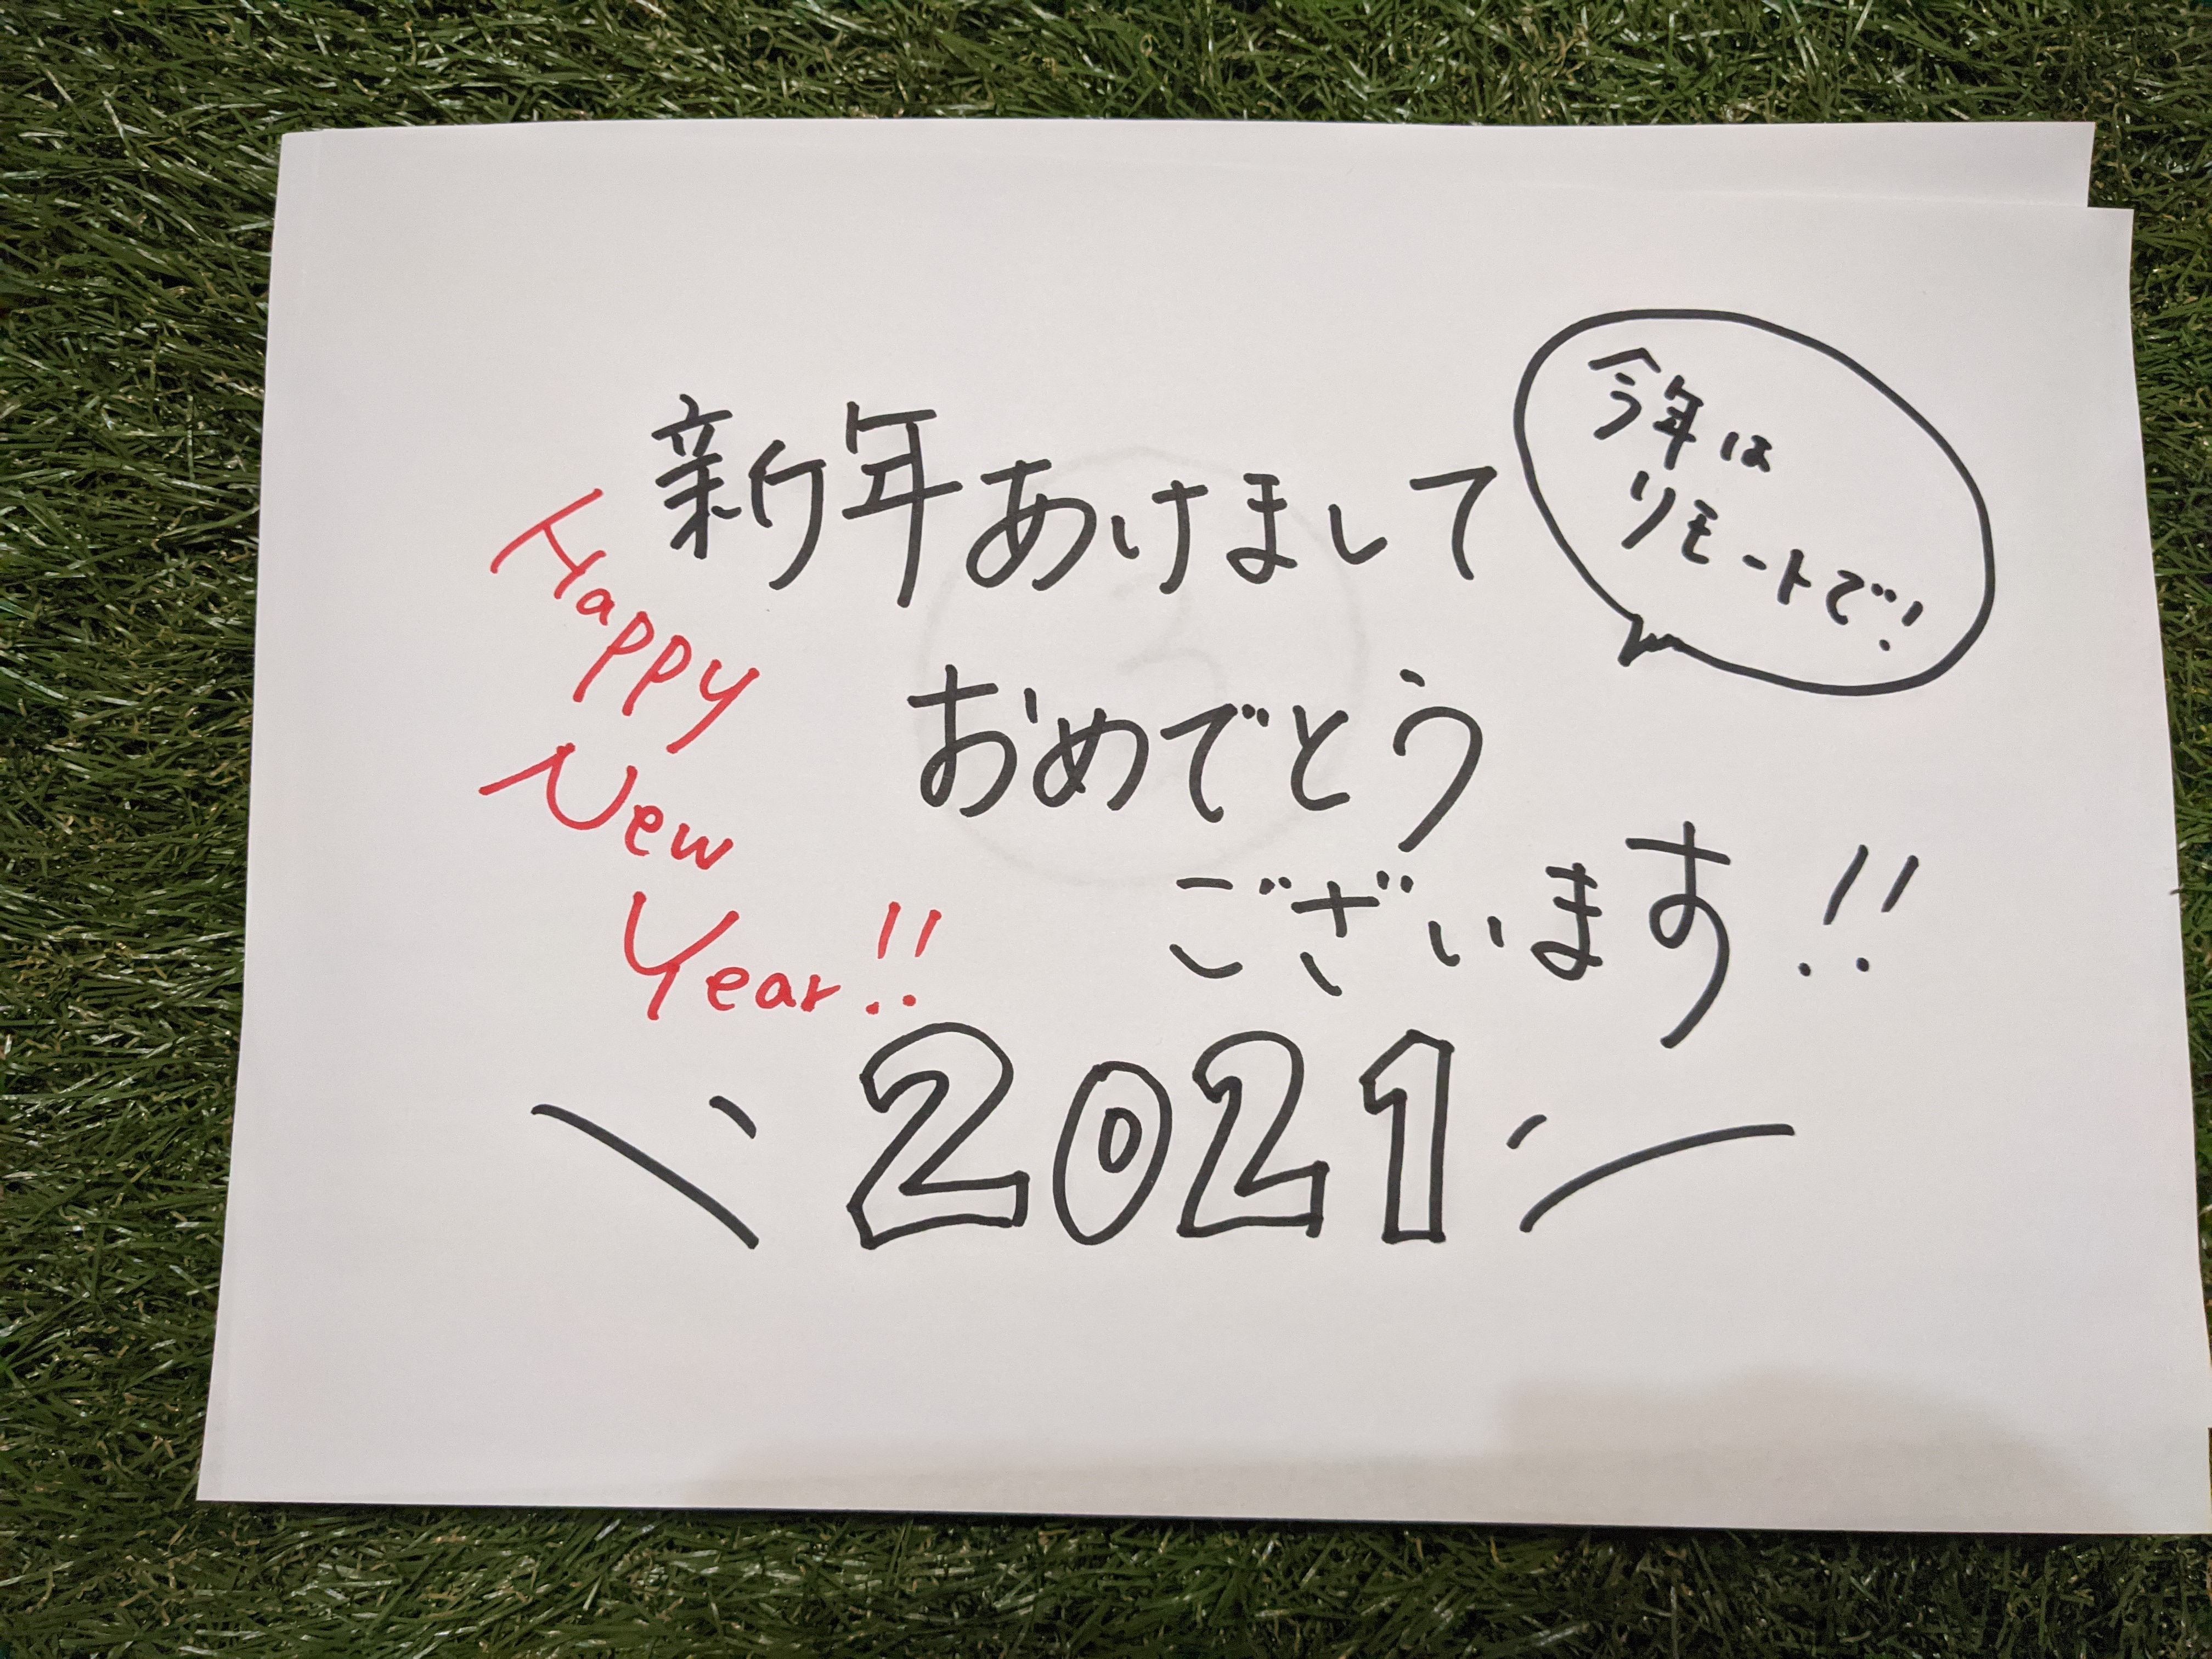 新年あけまして
おめでとう
ございます!!
今年は
リモートで!
Happy
New
Year!!
2021